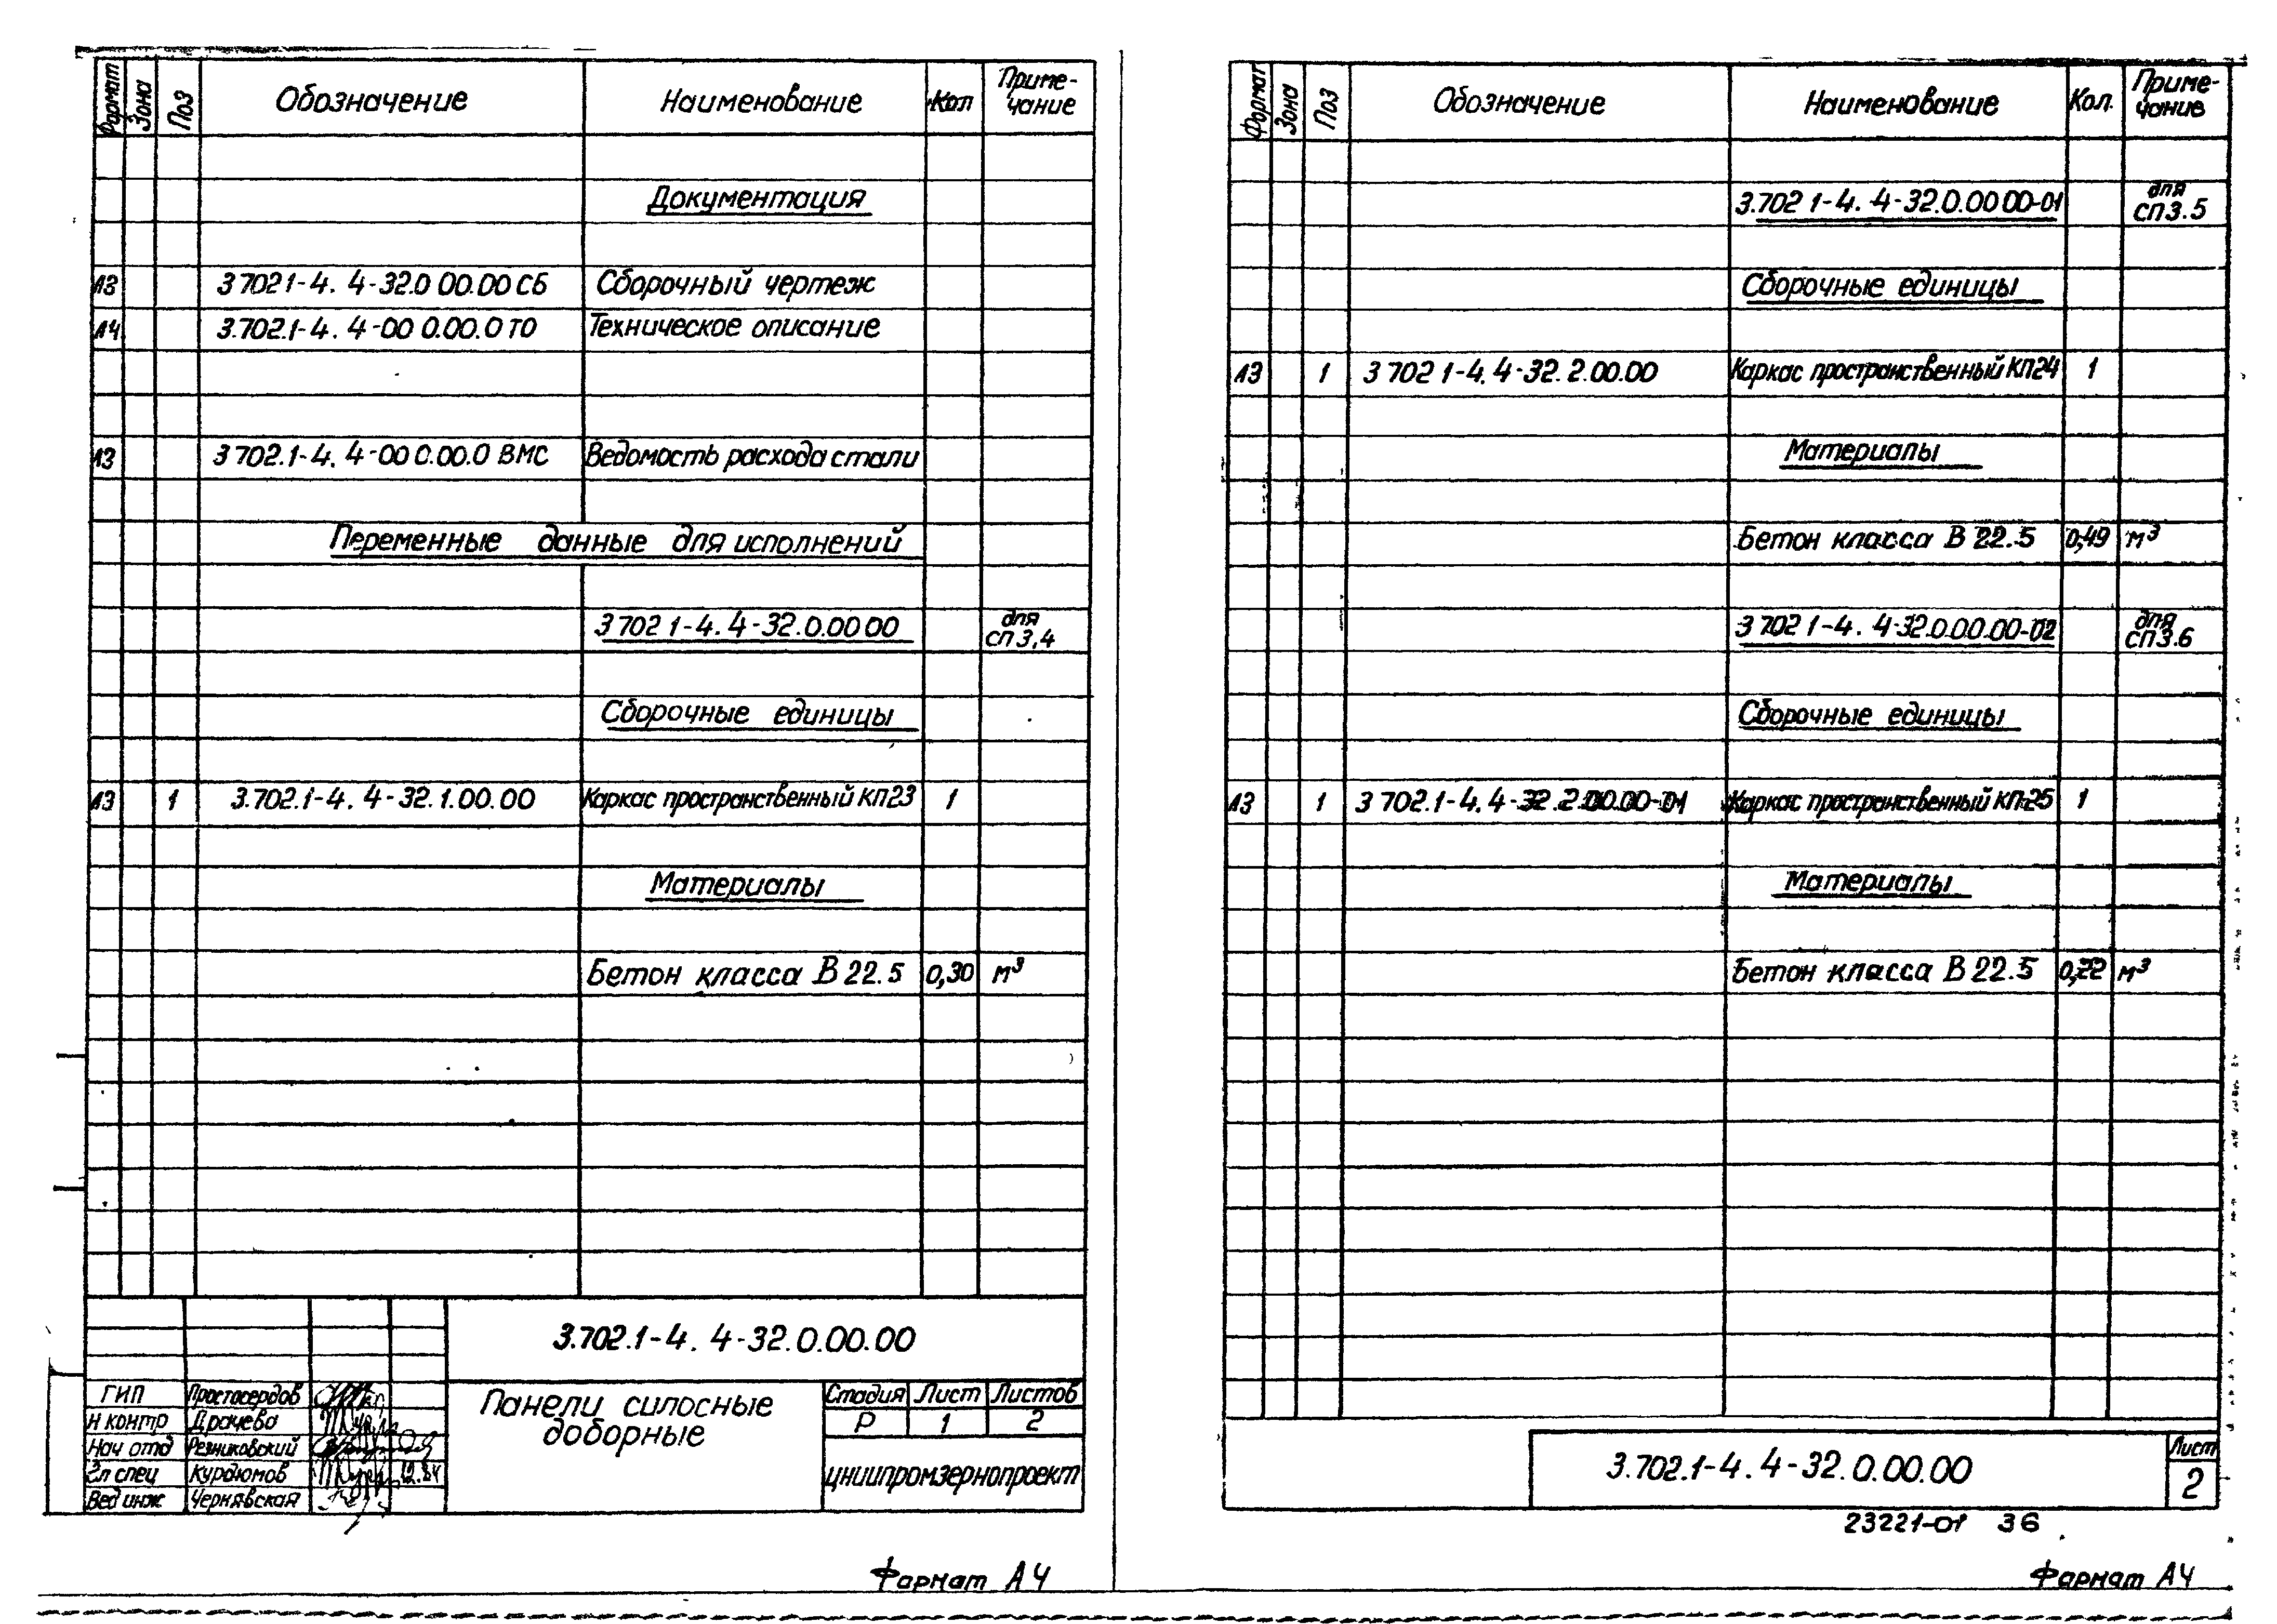 Формат Зона Поз Обозначение Наименование Кол Приме-
чание
Документация
А3 3 702 1-4. 4-32.0 00.00 СБ Сборочный чертеж
А4 3.702.1-4. 4-00 0.00.0 ТО Техническое описание
А3 3 702.1-4. 4-00 0.00.0 ВМС Ведомость расхода стали
Переменные данные для исполнений
3 702 1-4. 4-32.0.00 00 для
СП 3,4
Сборочные единицы
А3 1 3.702.1-4. 4-32.1.00.00 Каркас пространственный КП23 1
Материалы
Бетон класса В 22.5 0,30 м³
3.702.1-4. 4-32.0.00.00
ГИП Простосердов
Н контр Драчева
Нач отд Резниковский
Гл спец Курдюмов 12.84
Вед инж Чернявская
Панели силосные
доборные
Стадия Лист Листов
Р 1 2
ЦНИИпромзернопроект
Формат А4
Формат Зона Поз Обозначение Наименование Кол. Приме-
чание
3.702 1-4. 4-32.0.00 00-01 для
СП 3.5
Сборочные единицы
А3 1 3 702 1-4. 4-32. 2.00.00 Каркас пространственный КП24 1
Материалы
Бетон класса В 22.5 0,49 м³
3 702 1-4. 4-32.0.00.00-02 для
СП 3.6
Сборочные единицы
А3 1 3 702.1-4. 4-32.2.00.00-01 Каркас пространственный КП-25 1
Материалы
Бетон класса В 22.5 0,22 м³
3.702.1-4. 4-32.0.00.00
Лист
2
23221-01 36
Формат А4